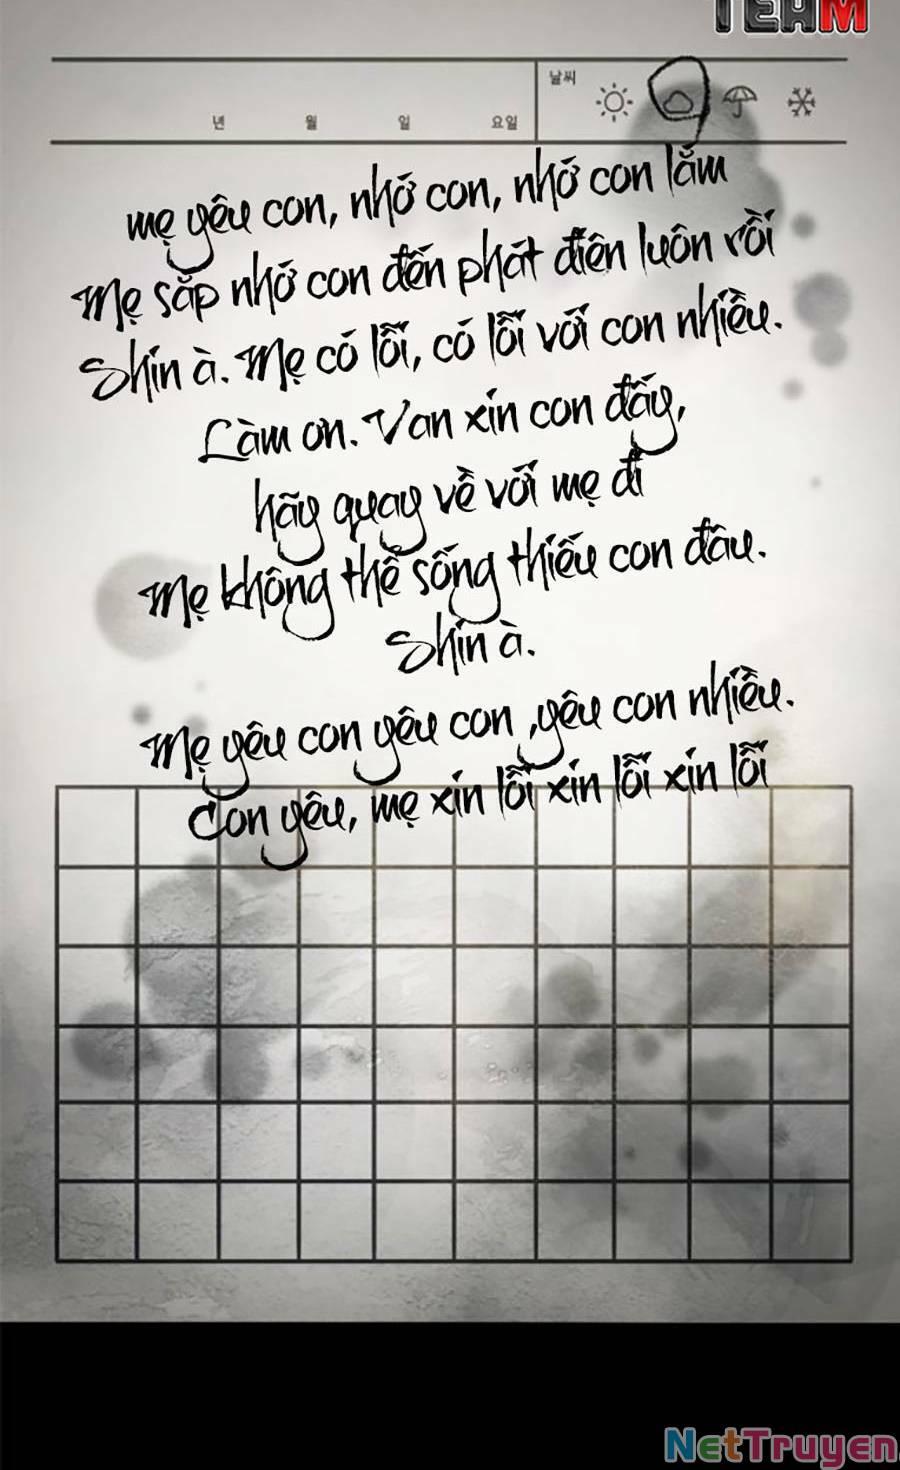 TEAM
날씨
년 월 일 요일
mẹ yêu con, nhớ con, nhớ con lắm
Mẹ sắp nhớ con đến phát điên luôn rồi
Shin à. Mẹ có lỗi, có lỗi với con nhiều.
Làm ơn. Van xin con đấy,
hãy quay về với mẹ đi
Mẹ không thể sống thiếu con đâu.
Shin à.
Mẹ yêu con yêu con ,yêu con nhiều.
Con yêu, mẹ xin lỗi xin lỗi xin lỗi
NetTruyen